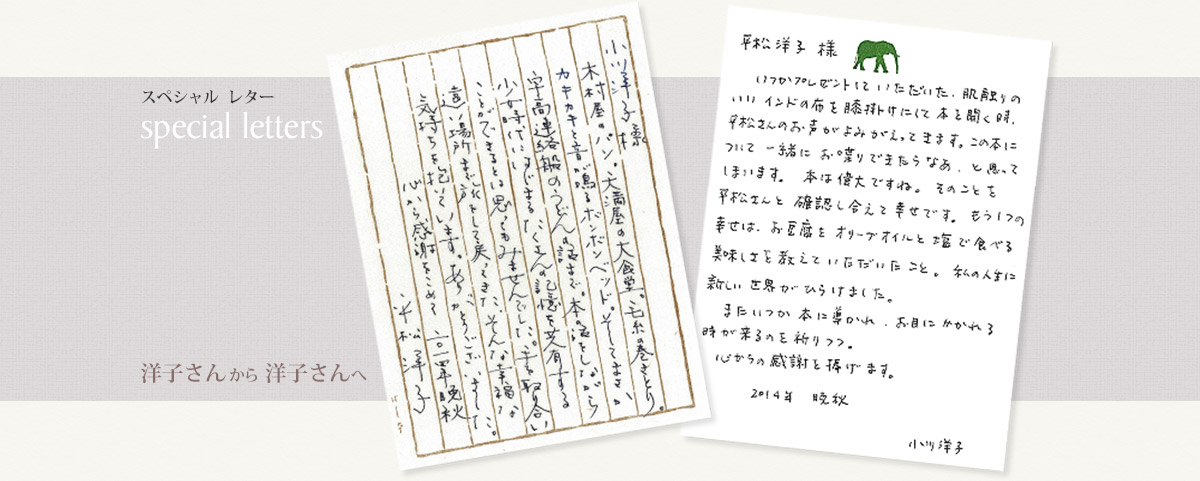 スペシャル レター
special letters
洋子さんから 洋子さんへ
小川洋子様
木村屋のパン。天満屋の大食堂。毛糸の巻きとり。
カキカキと音が鳴るボンボンベッド。そしてまさか
宇高連絡船のうどんの話まで。本の話をしながら
少女時代にはじまるたくさんの記憶を共有する
ことができるとは思ってもみませんでした。手を取り合い
遠い場所まで旅をして戻ってきた、そんな幸福な
気持ちを抱いています。ありがとうございました。
心から感謝をこめて
二〇一四年 晩秋
平松洋子
平松洋子 様
いつかプレゼントしていただいた、肌触りの
いいインドの布を膝掛けにして本を開く時、
平松さんのお声がよみがえってきます。この本に
ついて一緒にお喋りできたらなあ、と思って
しまいます。本は偉大ですね。そのことを
平松さんと確認し合えて幸せです。もう1つの
幸せは、お豆腐をオリーブオイルと塩で食べる
美味しさを教えていただいたこと。私の人生に
新しい世界がひらけました。
またいつか本に導かれ、お目にかかれる
時が来るのを祈りつつ。
心からの感謝を捧げます。
2014年 晩秋
小川洋子